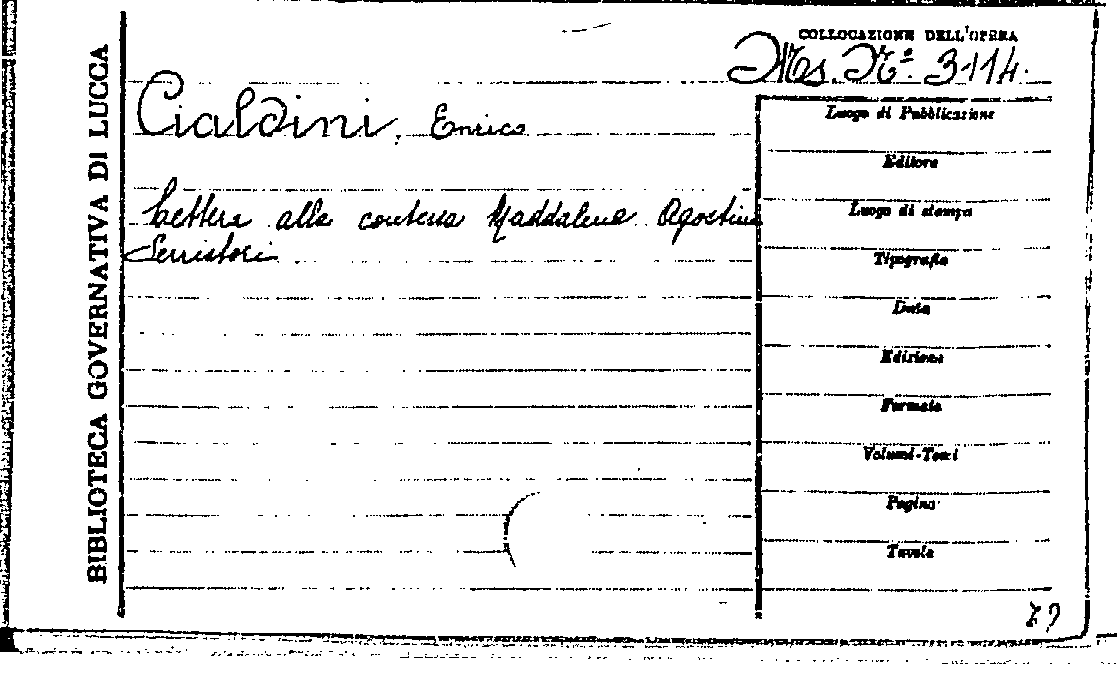 BIBLIOTECA GOVERNATIVA DI LUCCA
COLLOCAZIONE DELL'OPERA
Ms. Nº. 3114.
Cialdini, Enrico
Lettere alla contessa Maddalena Agostina
Serristori
Luogo di Pubblicazione
Editore
Luogo di stampa
Tipografia
Data
Edizione
Formato
Volumi-Tomi
Pagine
Tavole